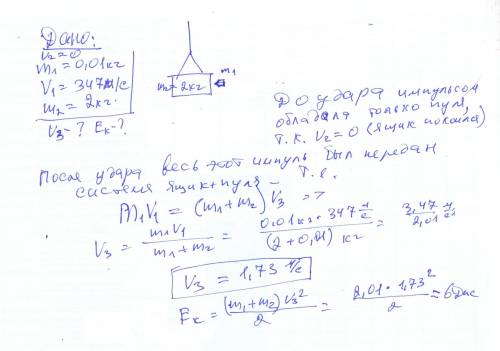 Дано:
v₂=0
m₁=0,01кг
V₁ = 347м/с
m₂ = 2кг.
V₃-? Eₖ-?
m₂=2кг
m₁
До удара импульсом
обладала только пуля,
т.к. V₂=0 (ящик покоился)
После удара весь этот импульс был передан
системе ящик+пуля – т.е.
m₁V₁ = (m₁+m₂) V₃ =>
V₃ = m₁V₁ / (m₁+m₂) = 0,01кг · 347 м/с / (2+0,01) кг = 3,47 / 2,01 м/с
V₃ = 1,73 м/с
Eₖ = (m₁+m₂) V₃² / 2 = 2,01 · 1,73² / 2 = 3Дж